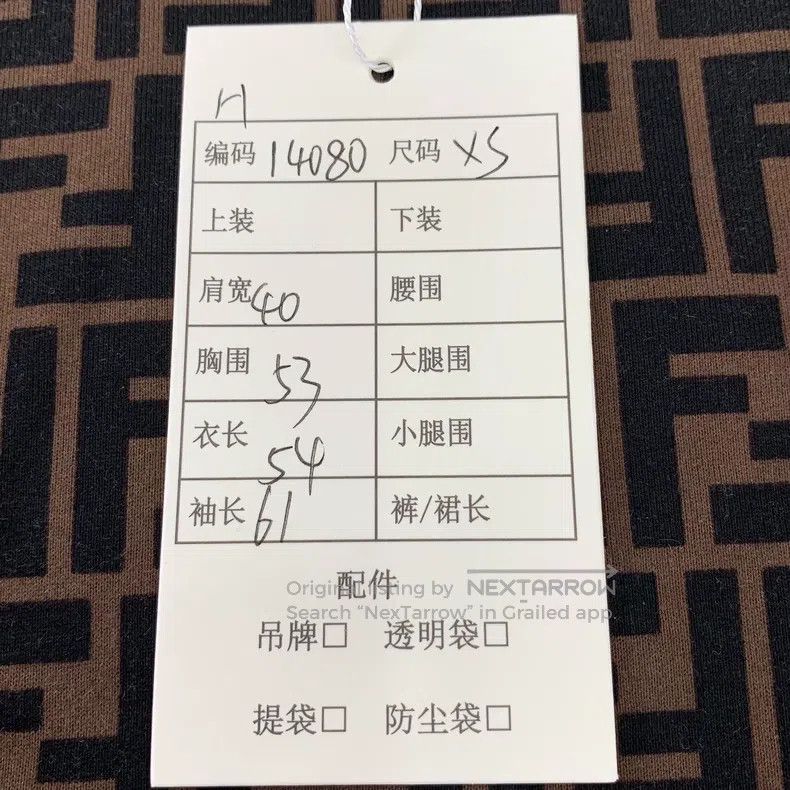 H
编码 14080 尺码 XS
上装 下装
肩宽 40 腰围
胸围 53 大腿围
衣长 54 小腿围
袖长 61 裤/裙长
配件
Original listing by NEXTARROW
Search “NexTarrow” in Grailed app.
吊牌□ 透明袋□
提袋□ 防尘袋□